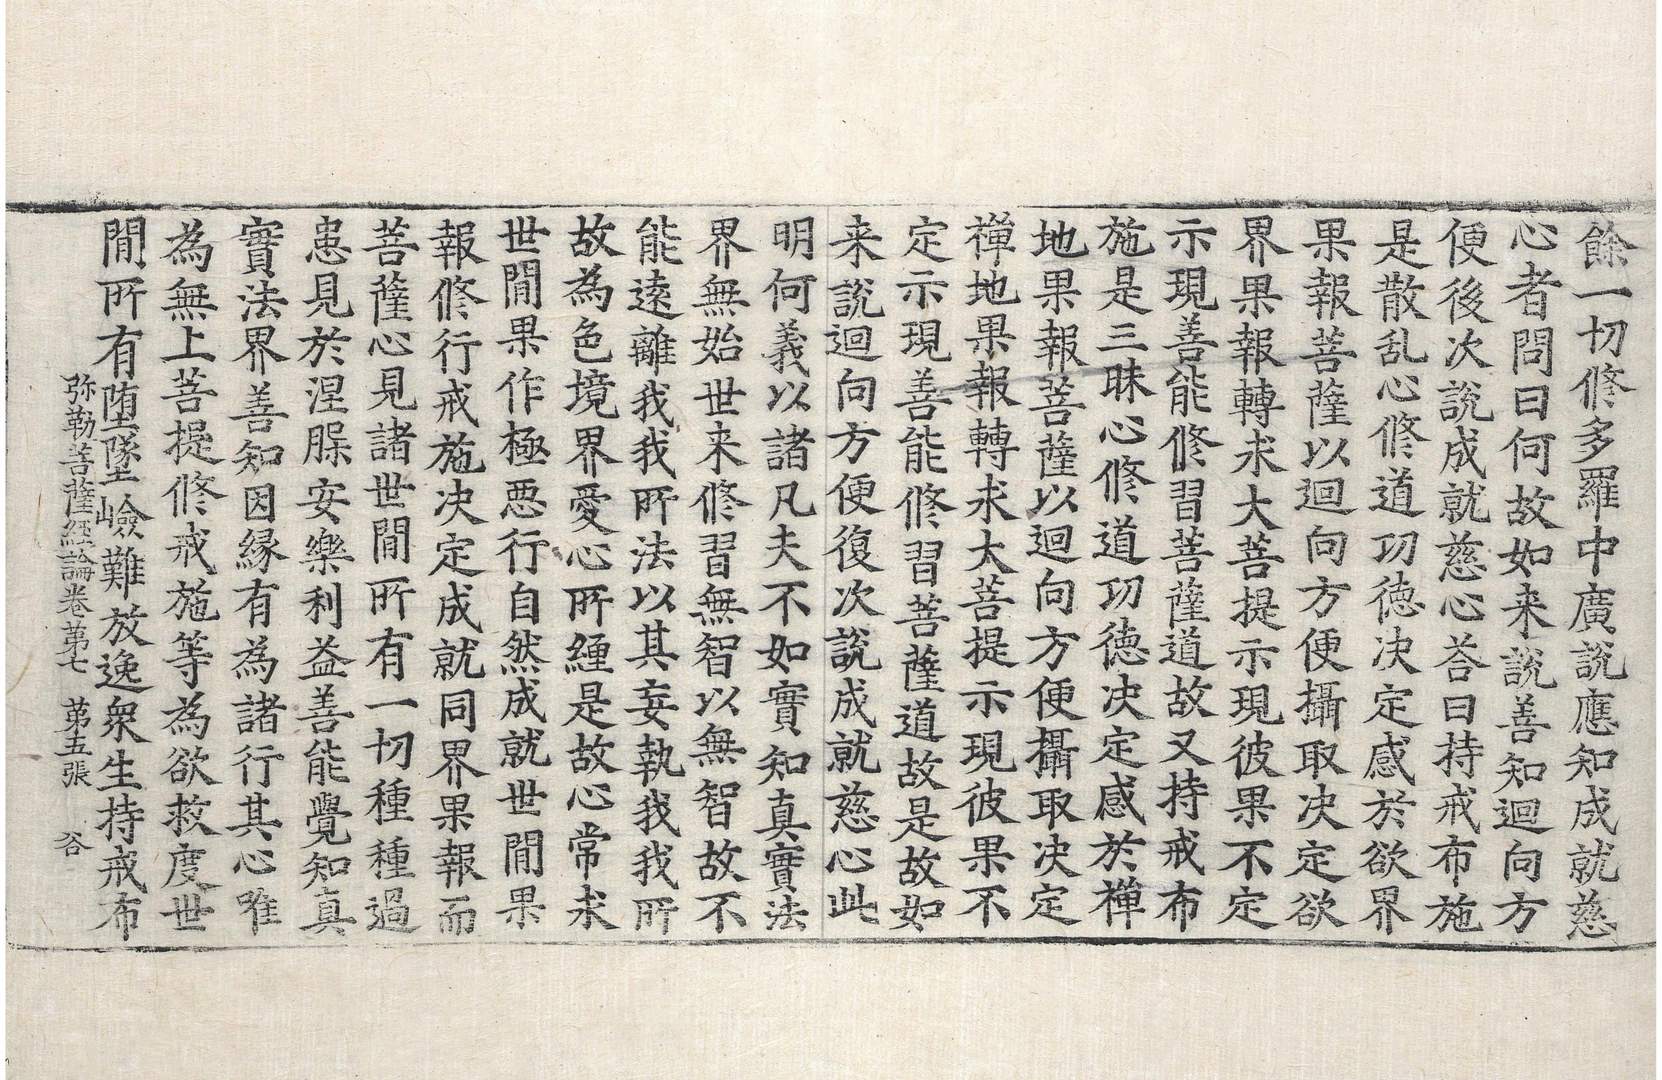 餘一切修多羅中廣說應知成就慈
心者問曰何故如来說善知迴向方
便後次說成就慈心荅曰持戒布施
是散乱心修道功德决定感於欲界
果報菩薩以迴向方便攝取决定欲
界果報轉求大菩提示現彼果不定
示現善能修習菩薩道故又持戒布
施是三昧心修道功德决定感於禅
地果報菩薩以迴向方便攝取决定
禅地果報轉求大菩提示現彼果不
定示現善能修習菩薩道故是故如
来說迴向方便復次說成就慈心此
明何義以諸凡夫不如實知真實法
界無始世来修習無智以無智故不
能遠離我我所法以其妄執我我所
故為色境界愛心所纏是故心常求
世間果作極惡行自然成就世間果
報修行戒施决定成就同界果報而
菩薩心見諸世間所有一切種種過
患見於涅槃安樂利益善能覺知真
實法界善知因緣有為諸行其心唯
為無上菩提修戒施等為欲救度世
間所有墮墜嶮難放逸衆生持戒布
弥勒菩薩經論卷第七　第五張　谷